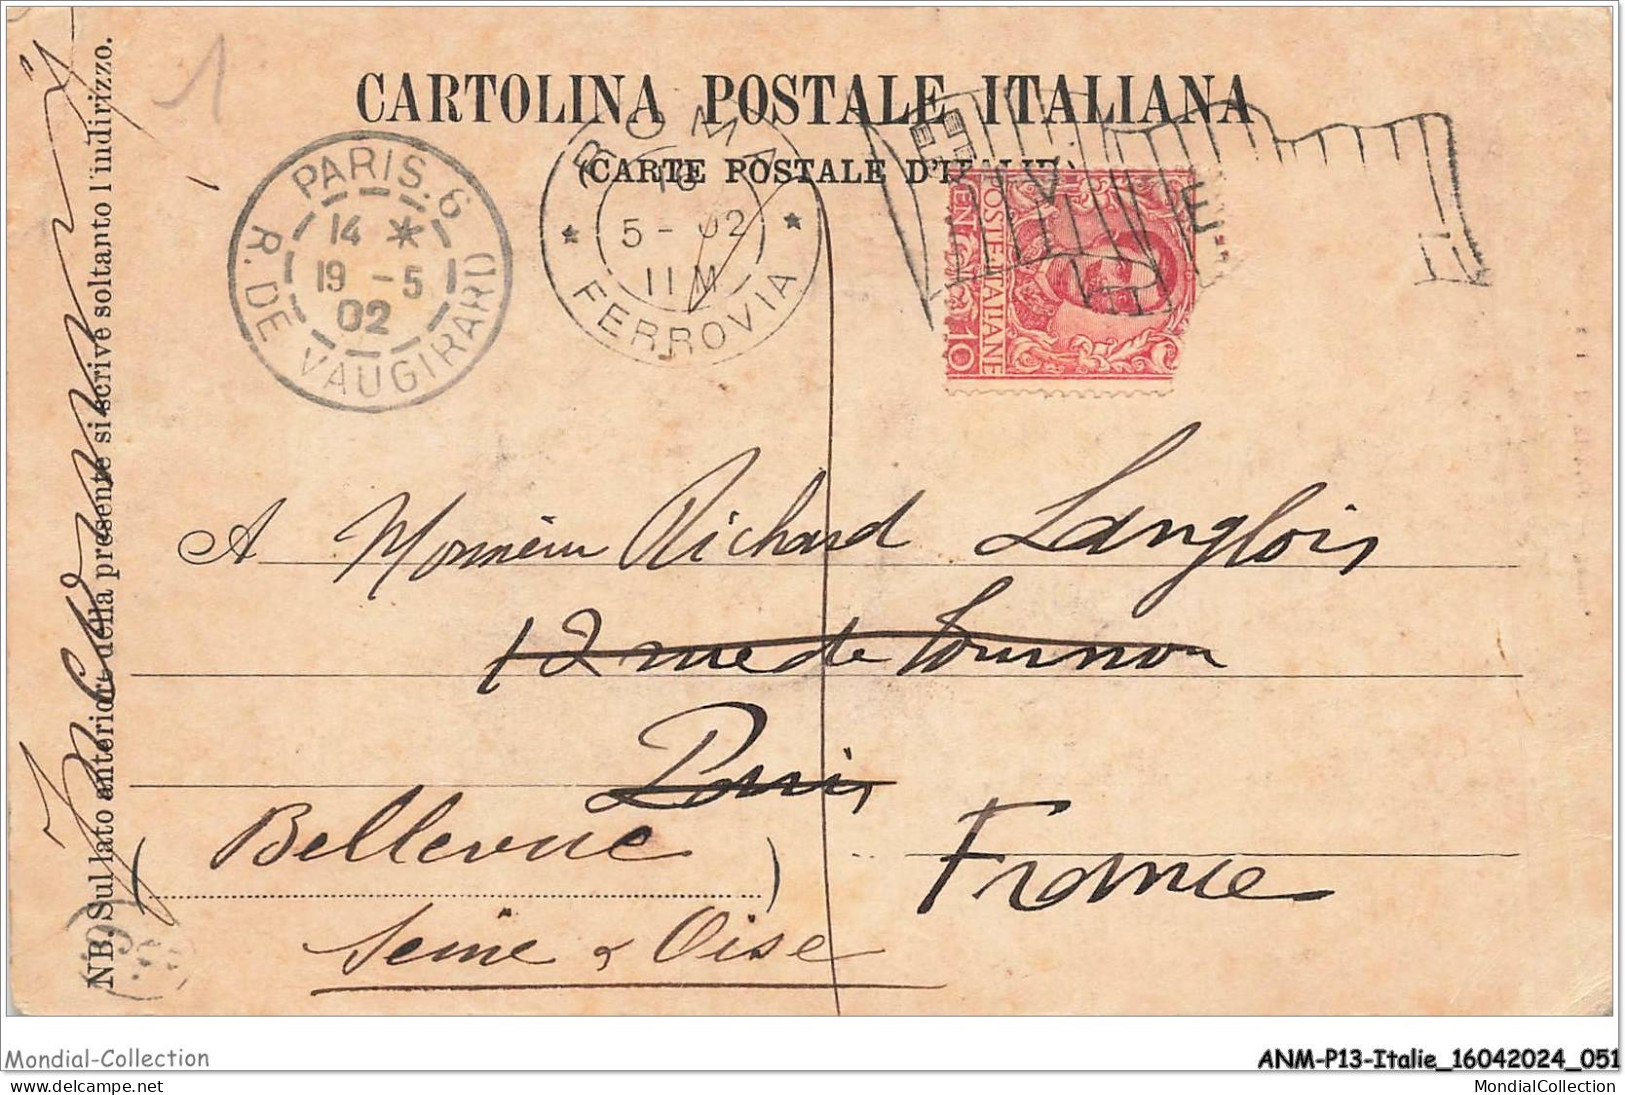 CARTOLINA POSTALE ITALIANA
(CARTE POSTALE D'ITALIE)
1
PARIS. 6
14 *
19 - 5
02
R. DE VAUGIRARD
ROMA
16
5 - 02
11 M
* FERROVIA *
POSTE ITALIANE
CENT 10
A Monsieur Richard Langlois
12 rue de Tournon
Paris
Bellevue
France
Seine & Oise
NB. Sul lato anteriore della presente si scrive soltanto l'indirizzo.
Mondial-Collection
ANM-P13-Italie_16042024_051
www.delcampe.net
MondialCollection